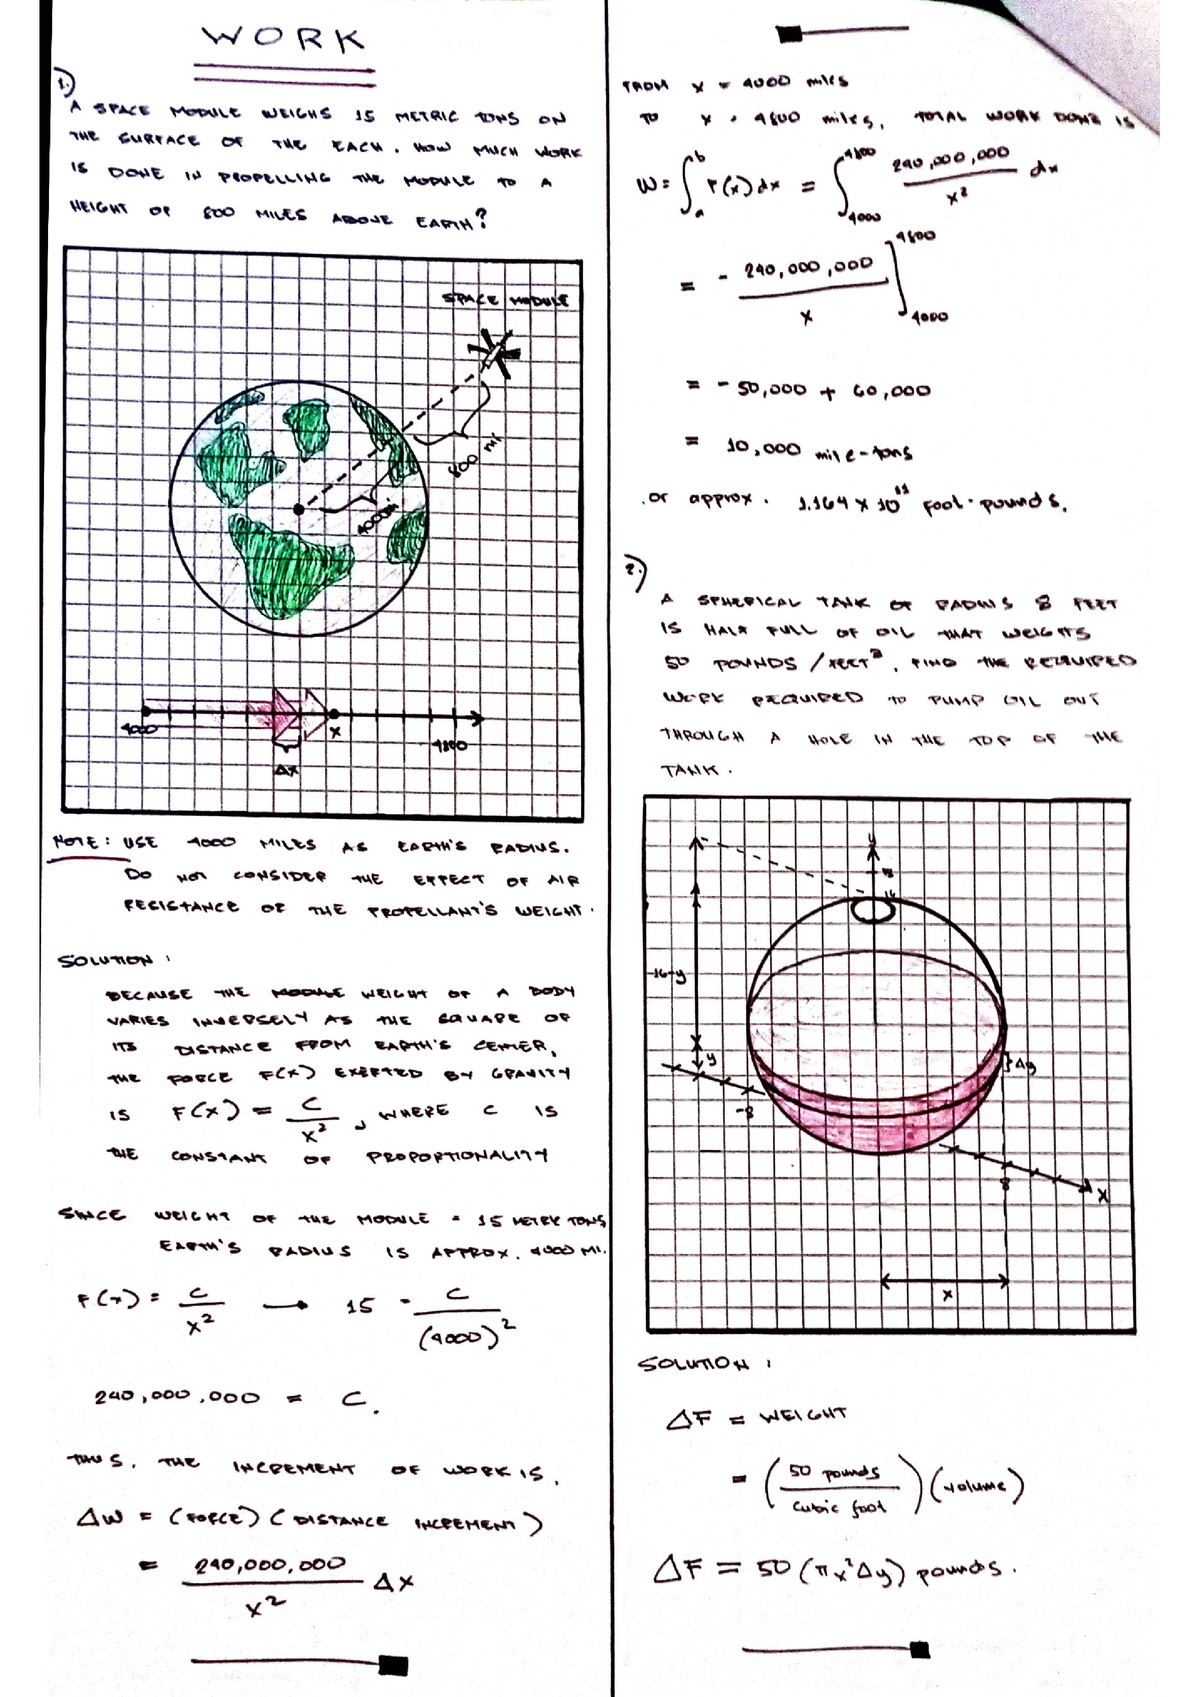 WORK
1.)
A SPACE MODULE WEIGHS 15 METRIC TONS ON
THE SURFACE OF THE EACH. HOW MUCH WORK
IS DONE IN PROPELLING THE MODULE TO A
HEIGHT OF 800 MILES ABOVE EARTH?
SPACE MODULE
800 mi
4000mi
4000
x
4800
Δx
NOTE: USE 4000 MILES AS EARTH'S RADIUS.
DO NOT CONSIDER THE EFFECT OF AIR
RESISTANCE OF THE PROPELLANT'S WEIGHT.
SOLUTION:
BECAUSE THE MODULE WEIGHT OF A BODY
VARIES INVERSELY AS THE SQUARE OF
ITS DISTANCE FROM EARTH'S CENTER,
THE FORCE F(X) EXERTED BY GRAVITY
IS F(X) = C/x², WHERE C IS
THE CONSTANT OF PROPORTIONALITY
SINCE WEIGHT OF THE MODULE = 15 METRIC TONS
EARTH'S RADIUS IS APPROX. 4000 MI.
F(x) = C/x² → 15 = C/(4000)²
240,000,000 = C.
THUS, THE INCREMENT OF WORK IS,
ΔW = (FORCE) (DISTANCE INCREMENT)
= 240,000,000/x² Δx
FROM x = 4000 miles
TO x = 4800 miles, TOTAL WORK DONE IS
W = ∫ₐᵇ F(x) dx = ∫₄₀₀₀⁴⁸⁰⁰ 240,000,000/x² dx
= - 240,000,000/x ]₄₀₀₀⁴⁸⁰⁰
= - 50,000 + 60,000
= 10,000 mile-tons
or approx. 1.164 x 10¹¹ foot-pounds.
2.)
A SPHERICAL TANK OF RADIUS 8 FEET
IS HALF FULL OF OIL THAT WEIGHTS
50 POUNDS/FEET³. FIND THE REQUIRED
WORK REQUIRED TO PUMP OIL OUT
THROUGH A HOLE IN THE TOP OF THE
TANK.
y
16
16-y
y
Δy
-8
8
x
x
SOLUTION:
ΔF = WEIGHT
= (50 pounds/cubic foot) (volume)
ΔF = 50 (πx²Δy) pounds.